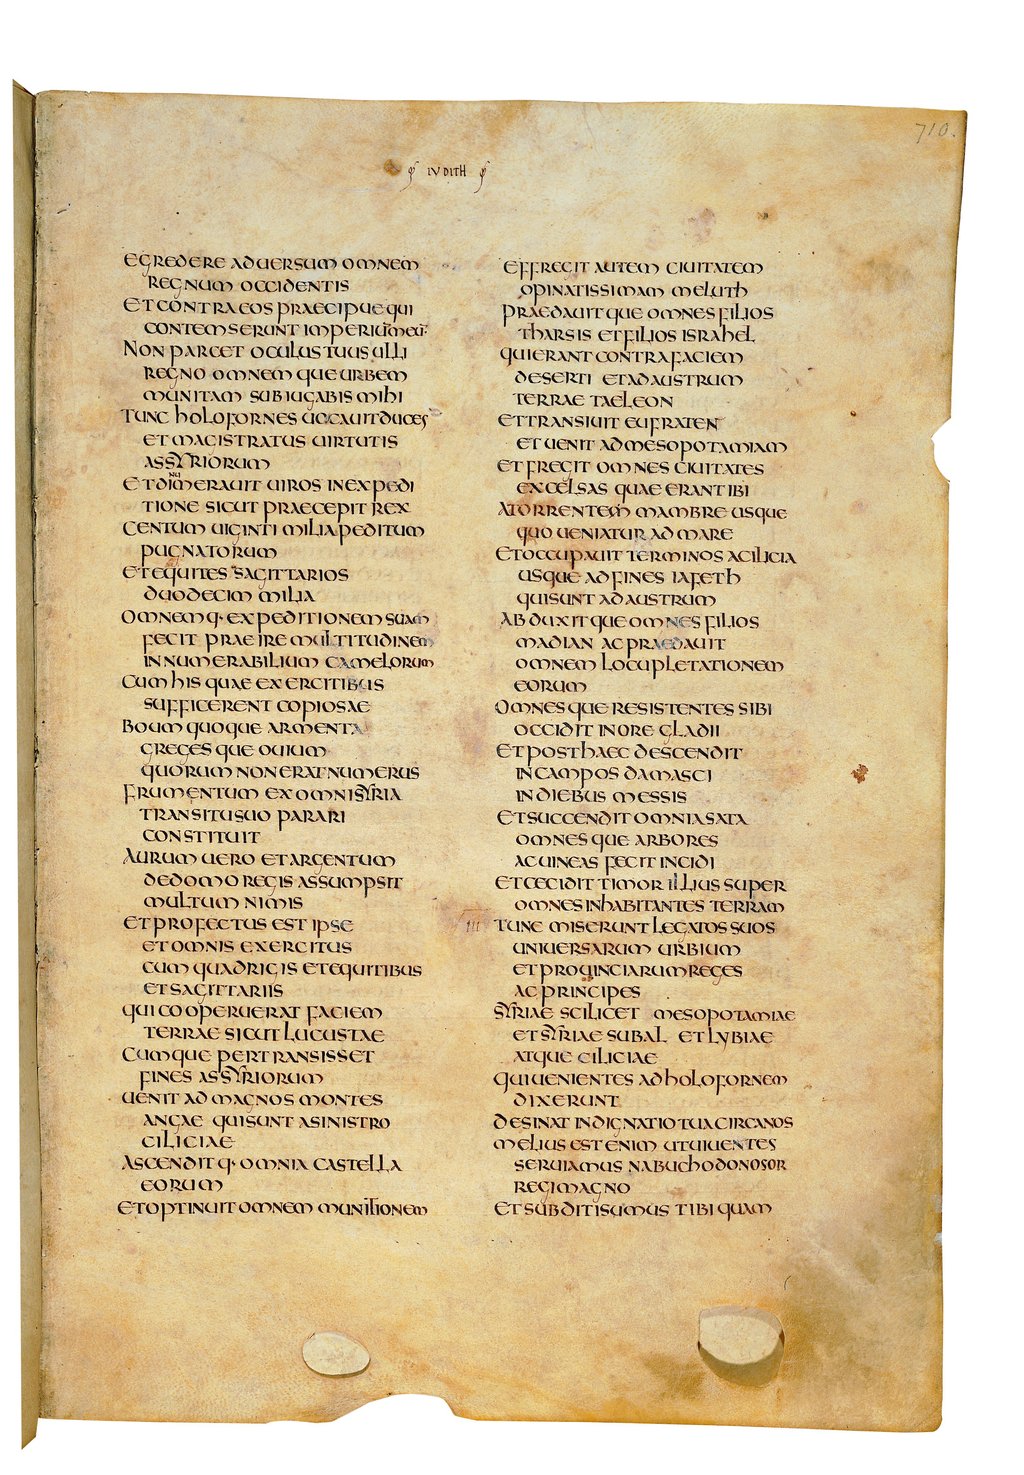 710.
IUDITH
EGREDERE ADUERSUM OMNEM
REGNUM OCCIDENTIS
ET CONTRA EOS PRAECIPUE QUI
CONTEMSERUNT IMPERIŪ MEŪ·
NON PARCET OCULUS TUUS ULLI
REGNO OMNEMQUE URBEM
MUNITAM SUBIUGABIS MIHI
TUNC HOLOFORNES UOCAUIT DUCES
ET MAGISTRATUS UIRTUTIS
ASSYRIORUM
ET DINUMERAUIT UIROS IN EXPEDI
TIONE SICUT PRAECEPIT REX
CENTUM UIGINTI MILIA PEDITUM
PUGNATORUM
ET EQUITES SAGITTARIOS
DUODECIM MILIA
OMNEMQ· EXPEDITIONEM SUAM
FECIT PRAEIRE MULTITUDINEM
INNUMERABILIUM CAMELORUM
CUM HIS QUAE EXERCITIBUS
SUFFICERENT COPIOSAE
BOUM QUOQUE ARMENTA
GREGESQUE OUIUM
QUORUM NON ERAT NUMERUS
FRUMENTUM EX OMNI SYRIA
TRANSITU SUO PARARI
CONSTITUIT
AURUM UERO ET ARGENTUM
DE DOMO REGIS ASSUMPSIT
MULTUM NIMIS
ET PROFECTUS EST IPSE
ET OMNIS EXERCITUS
CUM QUADRIGIS ET EQUITIBUS
ET SAGITTARIIS
QUI COOPERUERAT FACIEM
TERRAE SICUT LUCUSTAE
CUMQUE PERTRANSISSET
FINES ASSYRIORUM
UENIT AD MAGNOS MONTES
ANGAE QUI SUNT A SINISTRO
CILICIAE
ASCENDITQ· OMNIA CASTELLA
EORUM
ET OPTINUIT OMNEM MUNITIONEM
EFFREGIT AUTEM CIUITATEM
OPINATISSIMAM MELUTH
PRAEDAUITQUE OMNES FILIOS
THARSIS ET FILIOS ISRAHEL
QUI ERANT CONTRA FACIEM
DESERTI ET AD AUSTRUM
TERRAE TAELEON
ET TRANSIUIT EUFRATEN
ET UENIT AD MESOPOTAMIAM
ET FREGIT OMNES CIUITATES
EXCELSAS QUAE ERANT IBI
A TORRENTEM MAMBRE USQUE
QUO UENIATUR AD MARE
ET OCCUPAUIT TERMINOS A CILICIA
USQUE AD FINES IAFETH
QUI SUNT AD AUSTRUM
ABDUXITQUE OMNES FILIOS
MADIAN AC PRAEDAUIT
OMNEM LOCUPLETATIONEM
EORUM
OMNESQUE RESISTENTES SIBI
OCCIDIT IN ORE GLADII
ET POST HAEC DESCENDIT
IN CAMPOS DAMASCI
IN DIEBUS MESSIS
ET SUCCENDIT OMNIA SATA
OMNESQUE ARBORES
AC UINEAS FECIT INCIDI
ET CECIDIT TIMOR ILLIUS SUPER
OMNES INHABITANTES TERRAM
III TUNC MISERUNT LEGATOS SUOS
UNIUERSARUM URBIUM
ET PROUINCIARUM REGES
AC PRINCIPES
SYRIAE SCILICET MESOPOTAMIAE
ET SYRIAE SUBAL ET LYBIAE
ATQUE CILICIAE
QUI UENIENTES AD HOLOFORNEM
DIXERUNT
DESINAT INDIGNATIO TUA CIRCA NOS
MELIUS EST ENIM UT UIUENTES
SERUIAMUS NABUCHODONOSOR
REGI MAGNO
ET SUBDITI SUMUS TIBI QUAM